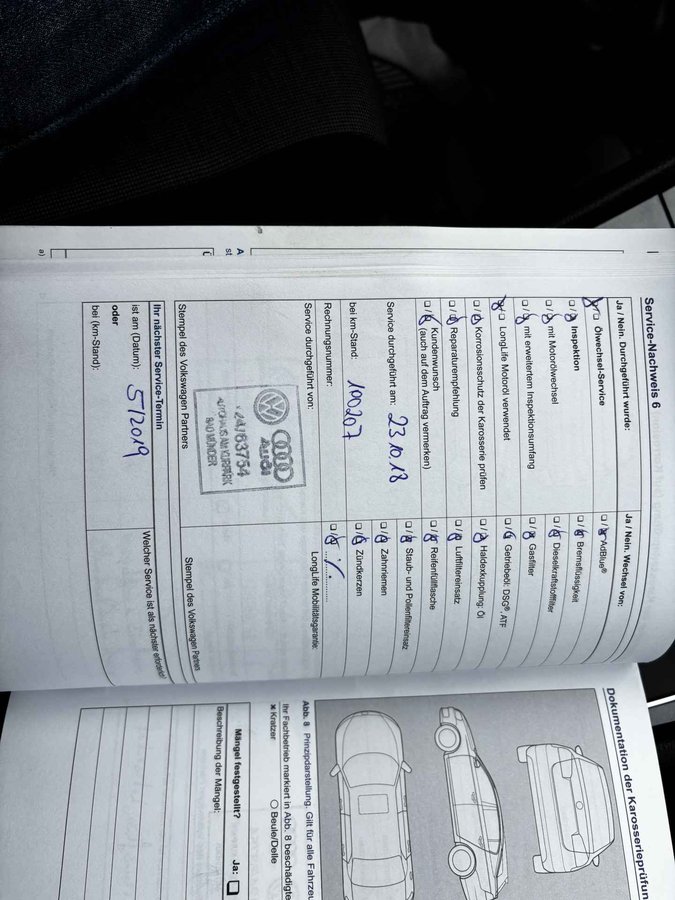 Service-Nachweis 6
Ja / Nein. Durchgeführt wurde:
Ölwechsel-Service
Inspektion
mit Motorölwechsel
mit erweitertem Inspektionsumfang
LongLife Motoröl verwendet
Korrosionsschutz der Karosserie prüfen
Reparaturempfehlung
Kundenwunsch
(auch auf dem Auftrag vermerken)
Service durchgeführt am: 23.10.18
bei km-Stand: 100207
Rechnungsnummer:
Service durchgeführt von:
Audi
24/63754
AUTOHAUS AM KURPARK
BAD MÜNDER
Stempel des Volkswagen Partners
Ja / Nein. Wechsel von:
AdBlue®
Bremsflüssigkeit
Dieselkraftstofffilter
Gasfilter
Getriebeöl: DSG®, ATF
Haldexkupplung: Öl
Luftfiltereinsatz
Reifenfüllflasche
Staub- und Pollenfiltereinsatz
Zahnriemen
Zündkerzen
LongLife Mobilitätsgarantie:
Stempel des Volkswagen Partners
Ihr nächster Service-Termin
ist am (Datum): 5/2019
oder
bei (km-Stand):
Welcher Service ist als nächster erforderlich?
Dokumentation der Karosserieprüfun
Abb. 8 Prinzipdarstellung. Gilt für alle Fahrzeu
Ihr Fachbetrieb markiert in Abb. 8 beschädigte
x Kratzer O Beule/Delle
Mängel festgestellt? Ja:
Beschreibung der Mängel:
A
st
a)